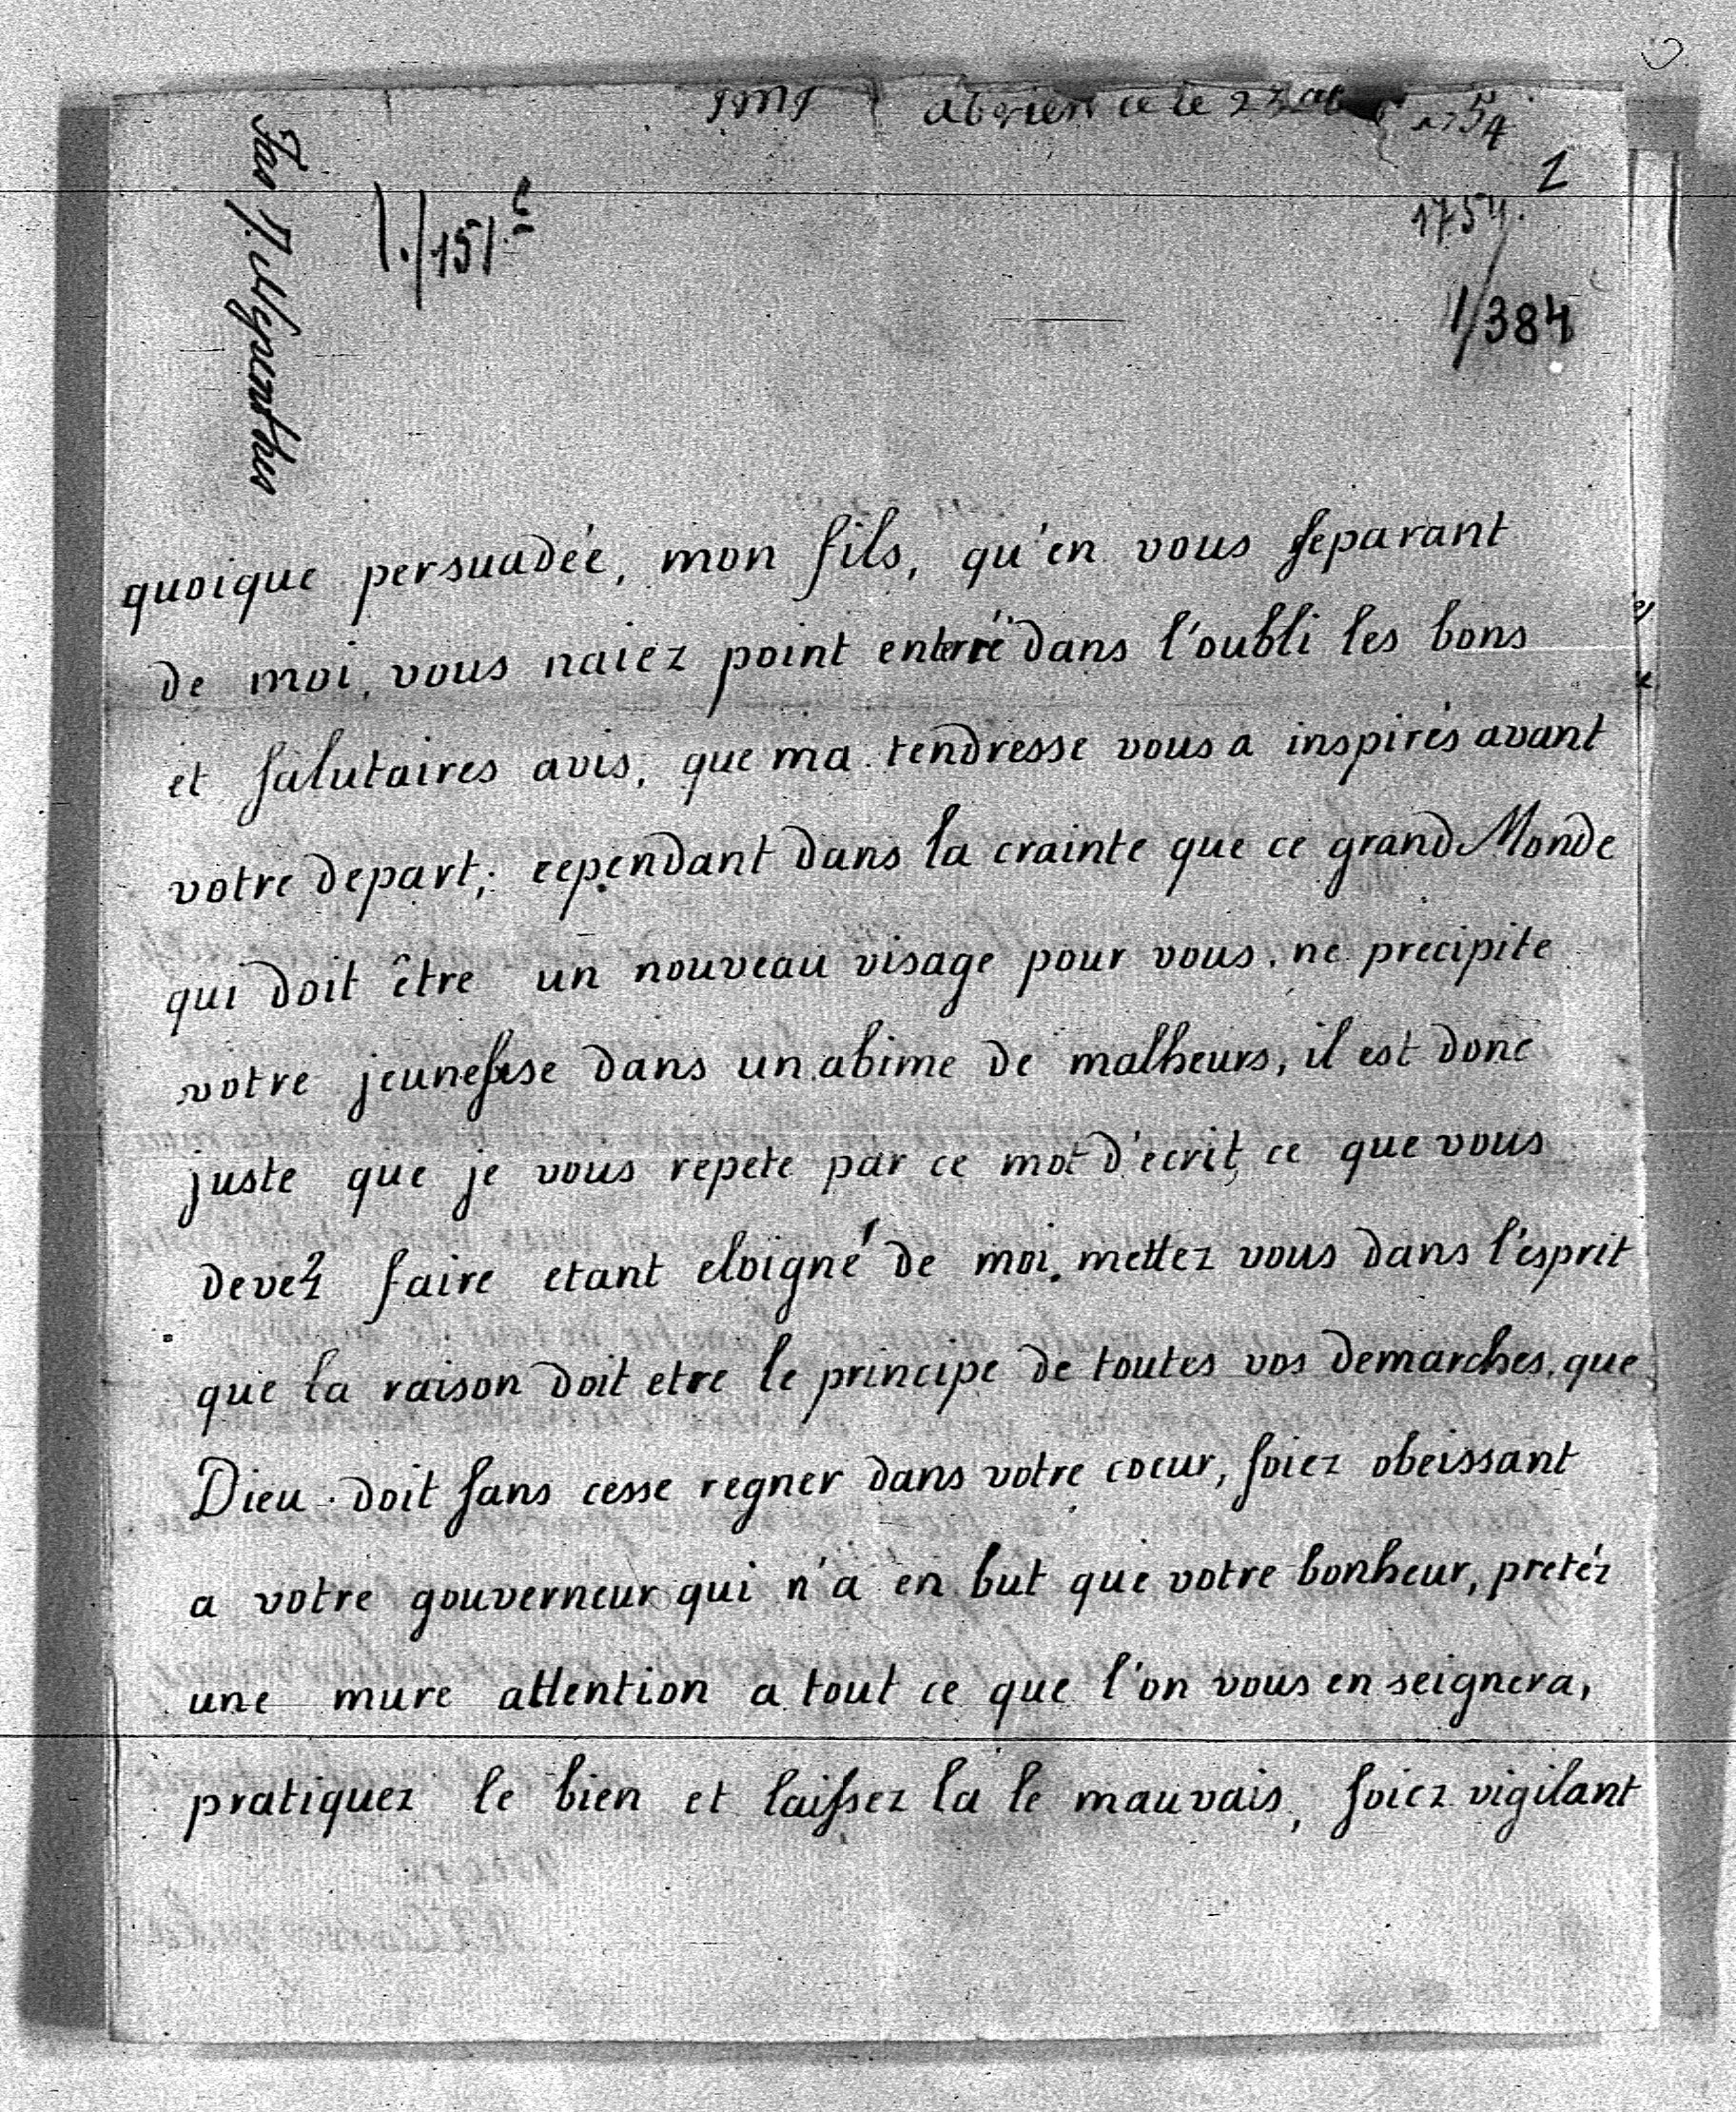 ce le 23 1754
1
1754.
1/151
1/384
quoique persuadée, mon fils, qu'en vous separant
de moi, vous naiez point enterré dans l'oubli les bons
et salutaires avis, que ma tendresse vous a inspirés avant
votre depart; cependant dans la crainte que ce grand Monde
qui doit être un nouveau visage pour vous, ne precipite
votre jeunesse dans un abime de malheurs, il est donc
juste que je vous repete par ce mot d'ecrit, ce que vous
devez faire etant eloigné de moi. mettez vous dans l'esprit
que la raison doit etre le principe de toutes vos demarches, que
Dieu doit sans cesse regner dans votre coeur, soiez obeissant
a votre gouverneur qui n'a en but que votre bonheur, pretéz
une mure attention a tout ce que l'on vous enseignera,
pratiquez le bien et laissez la le mauvais, soiez vigilant